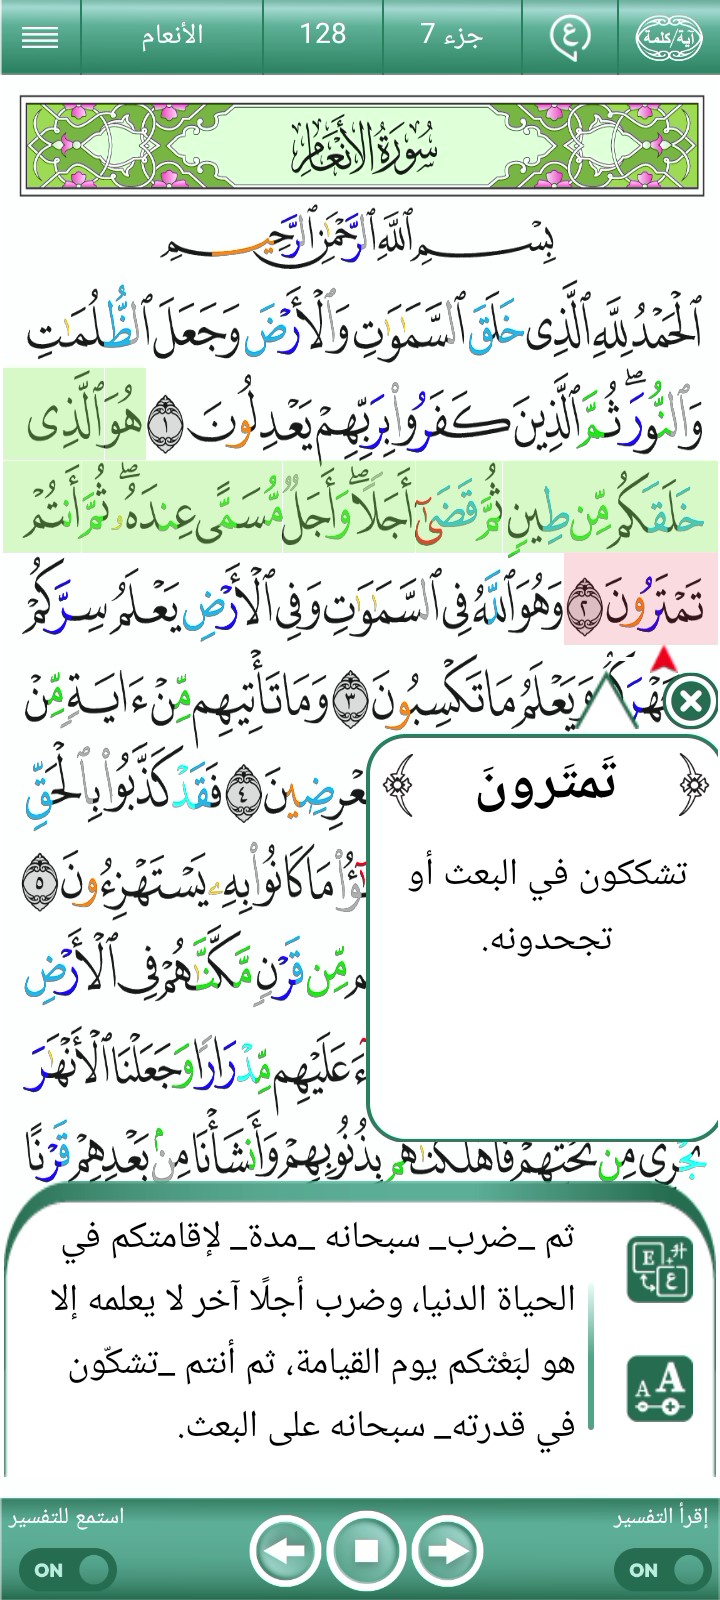 آية/كلمة
ع
جزء 7
128
الأنعام
سُورَةُ الأَنْعَامِ
بِسْمِ ٱللَّهِ ٱلرَّحْمَٰنِ ٱلرَّحِيمِ
ٱلْحَمْدُ لِلَّهِ ٱلَّذِى خَلَقَ ٱلسَّمَٰوَٰتِ وَٱلْأَرْضَ وَجَعَلَ ٱلظُّلُمَٰتِ
وَٱلنُّورَ ۖ ثُمَّ ٱلَّذِينَ كَفَرُوا۟ بِرَبِّهِمْ يَعْدِلُونَ ١ هُوَ ٱلَّذِى
خَلَقَكُم مِّن طِينٍ ثُمَّ قَضَىٰٓ أَجَلًا ۖ وَأَجَلٌ مُّسَمًّى عِندَهُۥ ۖ ثُمَّ أَنتُمْ
تَمْتَرُونَ ٢ وَهُوَ ٱللَّهُ فِى ٱلسَّمَٰوَٰتِ وَفِى ٱلْأَرْضِ يَعْلَمُ سِرَّكُمْ
وَيَعْلَمُ مَا تَكْسِبُونَ ٣ وَمَا تَأْتِيهِم مِّنْ ءَايَةٍ مِّنْ
فَقَدْ كَذَّبُوا۟ بِٱلْحَقِّ
مَا كَانُوا۟ بِهِۦ يَسْتَهْزِءُونَ ٥
مِّن قَرْنٍ مَّكَّنَّٰهُمْ فِى ٱلْأَرْضِ
عَلَيْهِم مِّدْرَارًا وَجَعَلْنَا ٱلْأَنْهَٰرَ
تَجْرِى مِن تَحْتِهِمْ فَأَهْلَكْنَٰهُم بِذُنُوبِهِمْ وَأَنشَأْنَا مِنۢ بَعْدِهِمْ قَرْنًا
﴿ تَمتَرونَ ﴾
تشككون في البعث أو
تجحدونه.
ثم _ضرب_ سبحانه _مدة_ لإقامتكم في
الحياة الدنيا، وضرب أجلًا آخر لا يعلمه إلا
هو لبَعْثكم يوم القيامة، ثم أنتم _تشكّون
في قدرته_ سبحانه على البعث.
إقرأ التفسير
استمع للتفسير
ON
ON